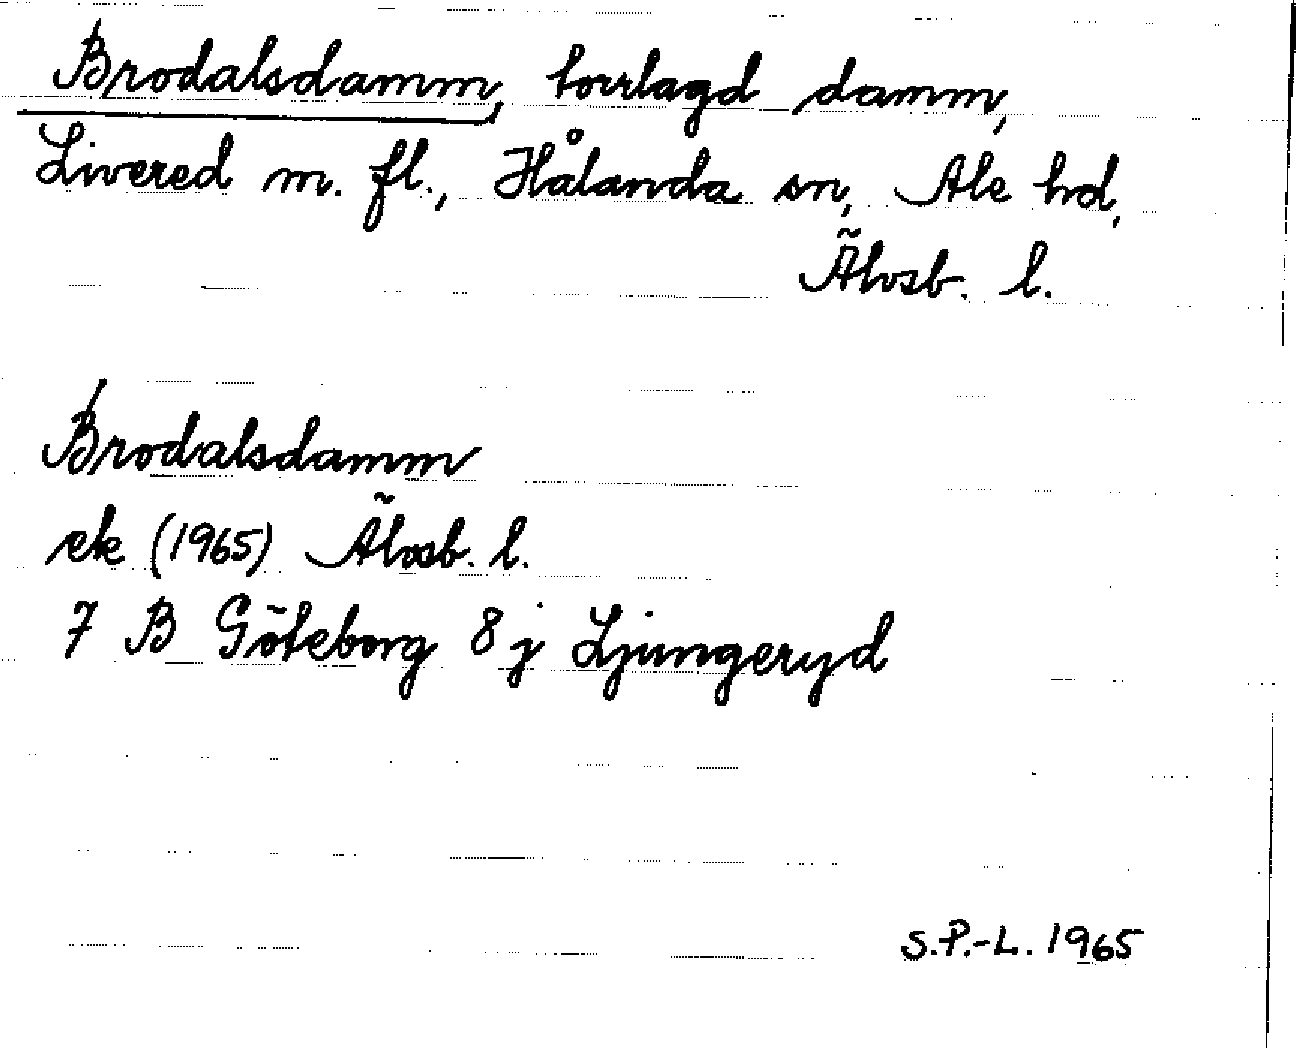 Brodalsdamm, torrlagd damm,
Livered m. fl., Hålanda sn, Ale hd,
Älvsb. l.
Brodalsdamm
ek (1965) Älvsb. l.
7 B Göteborg 8 j Ljungeryd
S.P.-L. 1965